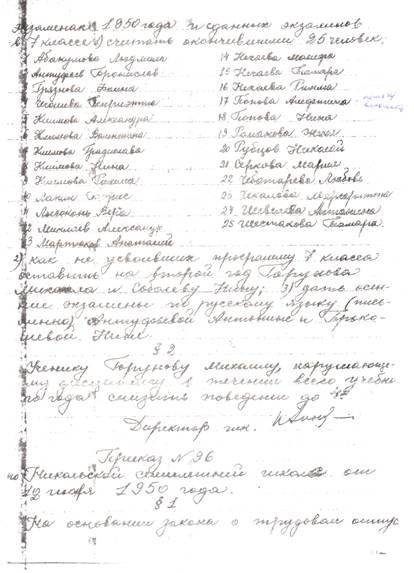 экзаменах 1950 года и сданных экзаменов
в 7 классе 1) считать окончившими 25 человек:
Абакумова Людмила 14 Нечаева
Антуфьев Бронислав 15 Нечаева Тамара
Грязнова Галина 16 Нечаева Римма
Генриэтта 17 Попова
Климова Александра 18 Попова Нина
Климова Валентина 19 Ромакова
Климова 20 Рубцов Николай
Климова Нина 21 Серкова Мария
Климова 22 Чеботарева Любовь
10 Лапин 23 Чекалова Маргаритта
11 Вера 24 Шевелева Антонина
12 Михалев Александр 25 Шестакова Тамара.
13 Мартюков Анатолий
2) как не усвоивших программу 7 класса
оставить на второй год Горунова
Михаила и Соболеву Нину; 3) дать осен-
ние экзамены по русскому языку (пись-
менно) Антуфьевой Антонине и Проко-
шевой Нине.
§ 2
Ученику Горунову Михаилу, нарушающе-
му дисциплину в течении всего учебно-
го года снизить поведение до
Директор шк.
Приказ № 96
по Никольской школе от
12 1950 года.
§ 1
На основании закона о трудовом отпус